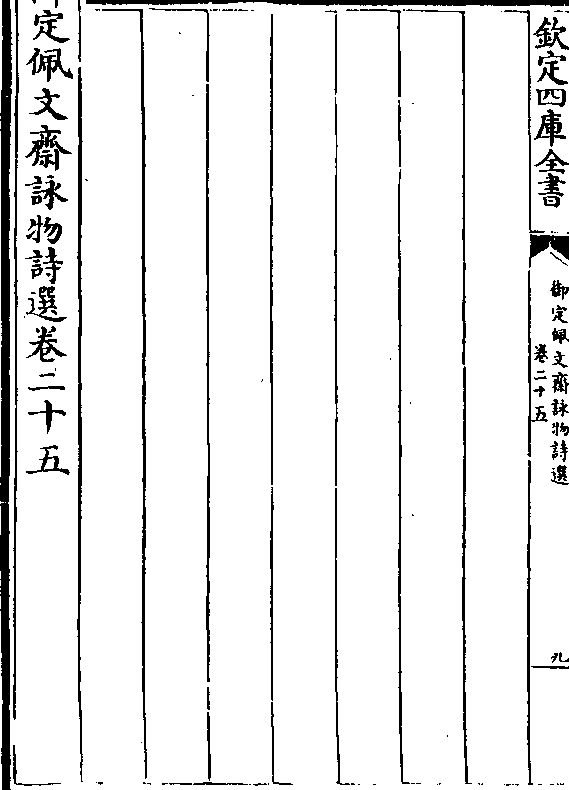 欽定四庫全書
御定佩文齋詠物詩選
卷二十五
九
御定佩文齋詠物詩選卷二十五